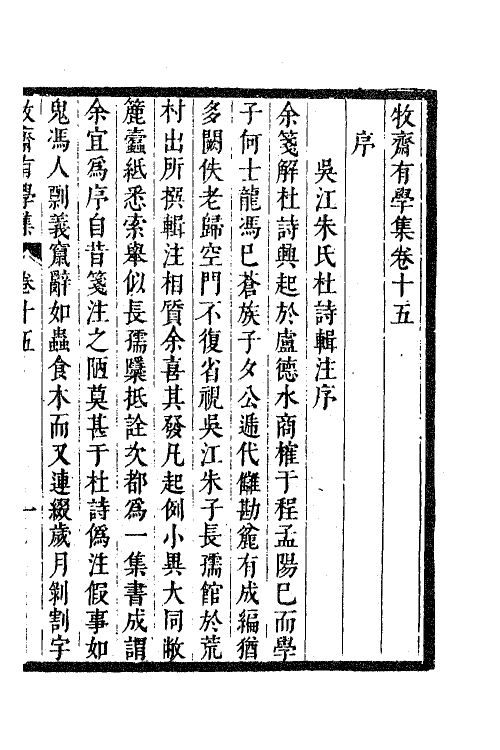 牧齋有學集卷十五
序
吳江朱氏杜詩輯注序
余箋解杜詩興起於盧德水商榷于程孟陽已而學
子何士龍馮已蒼族子夕公遞代讎勘麄有成編猶
多闕佚老歸空門不復省視吳江朱子長孺館於荒
村出所撰輯注相質余喜其發凡起例小異大同敝
簏蠹紙悉索舉似長孺櫽括詮次都爲一集書成謂
余宜爲序自昔箋注之陋莫甚于杜詩僞注假事如
鬼馮人剽義竄辭如蟲食木而又連綴歲月剝割字
牧齋有學集 卷十五 一